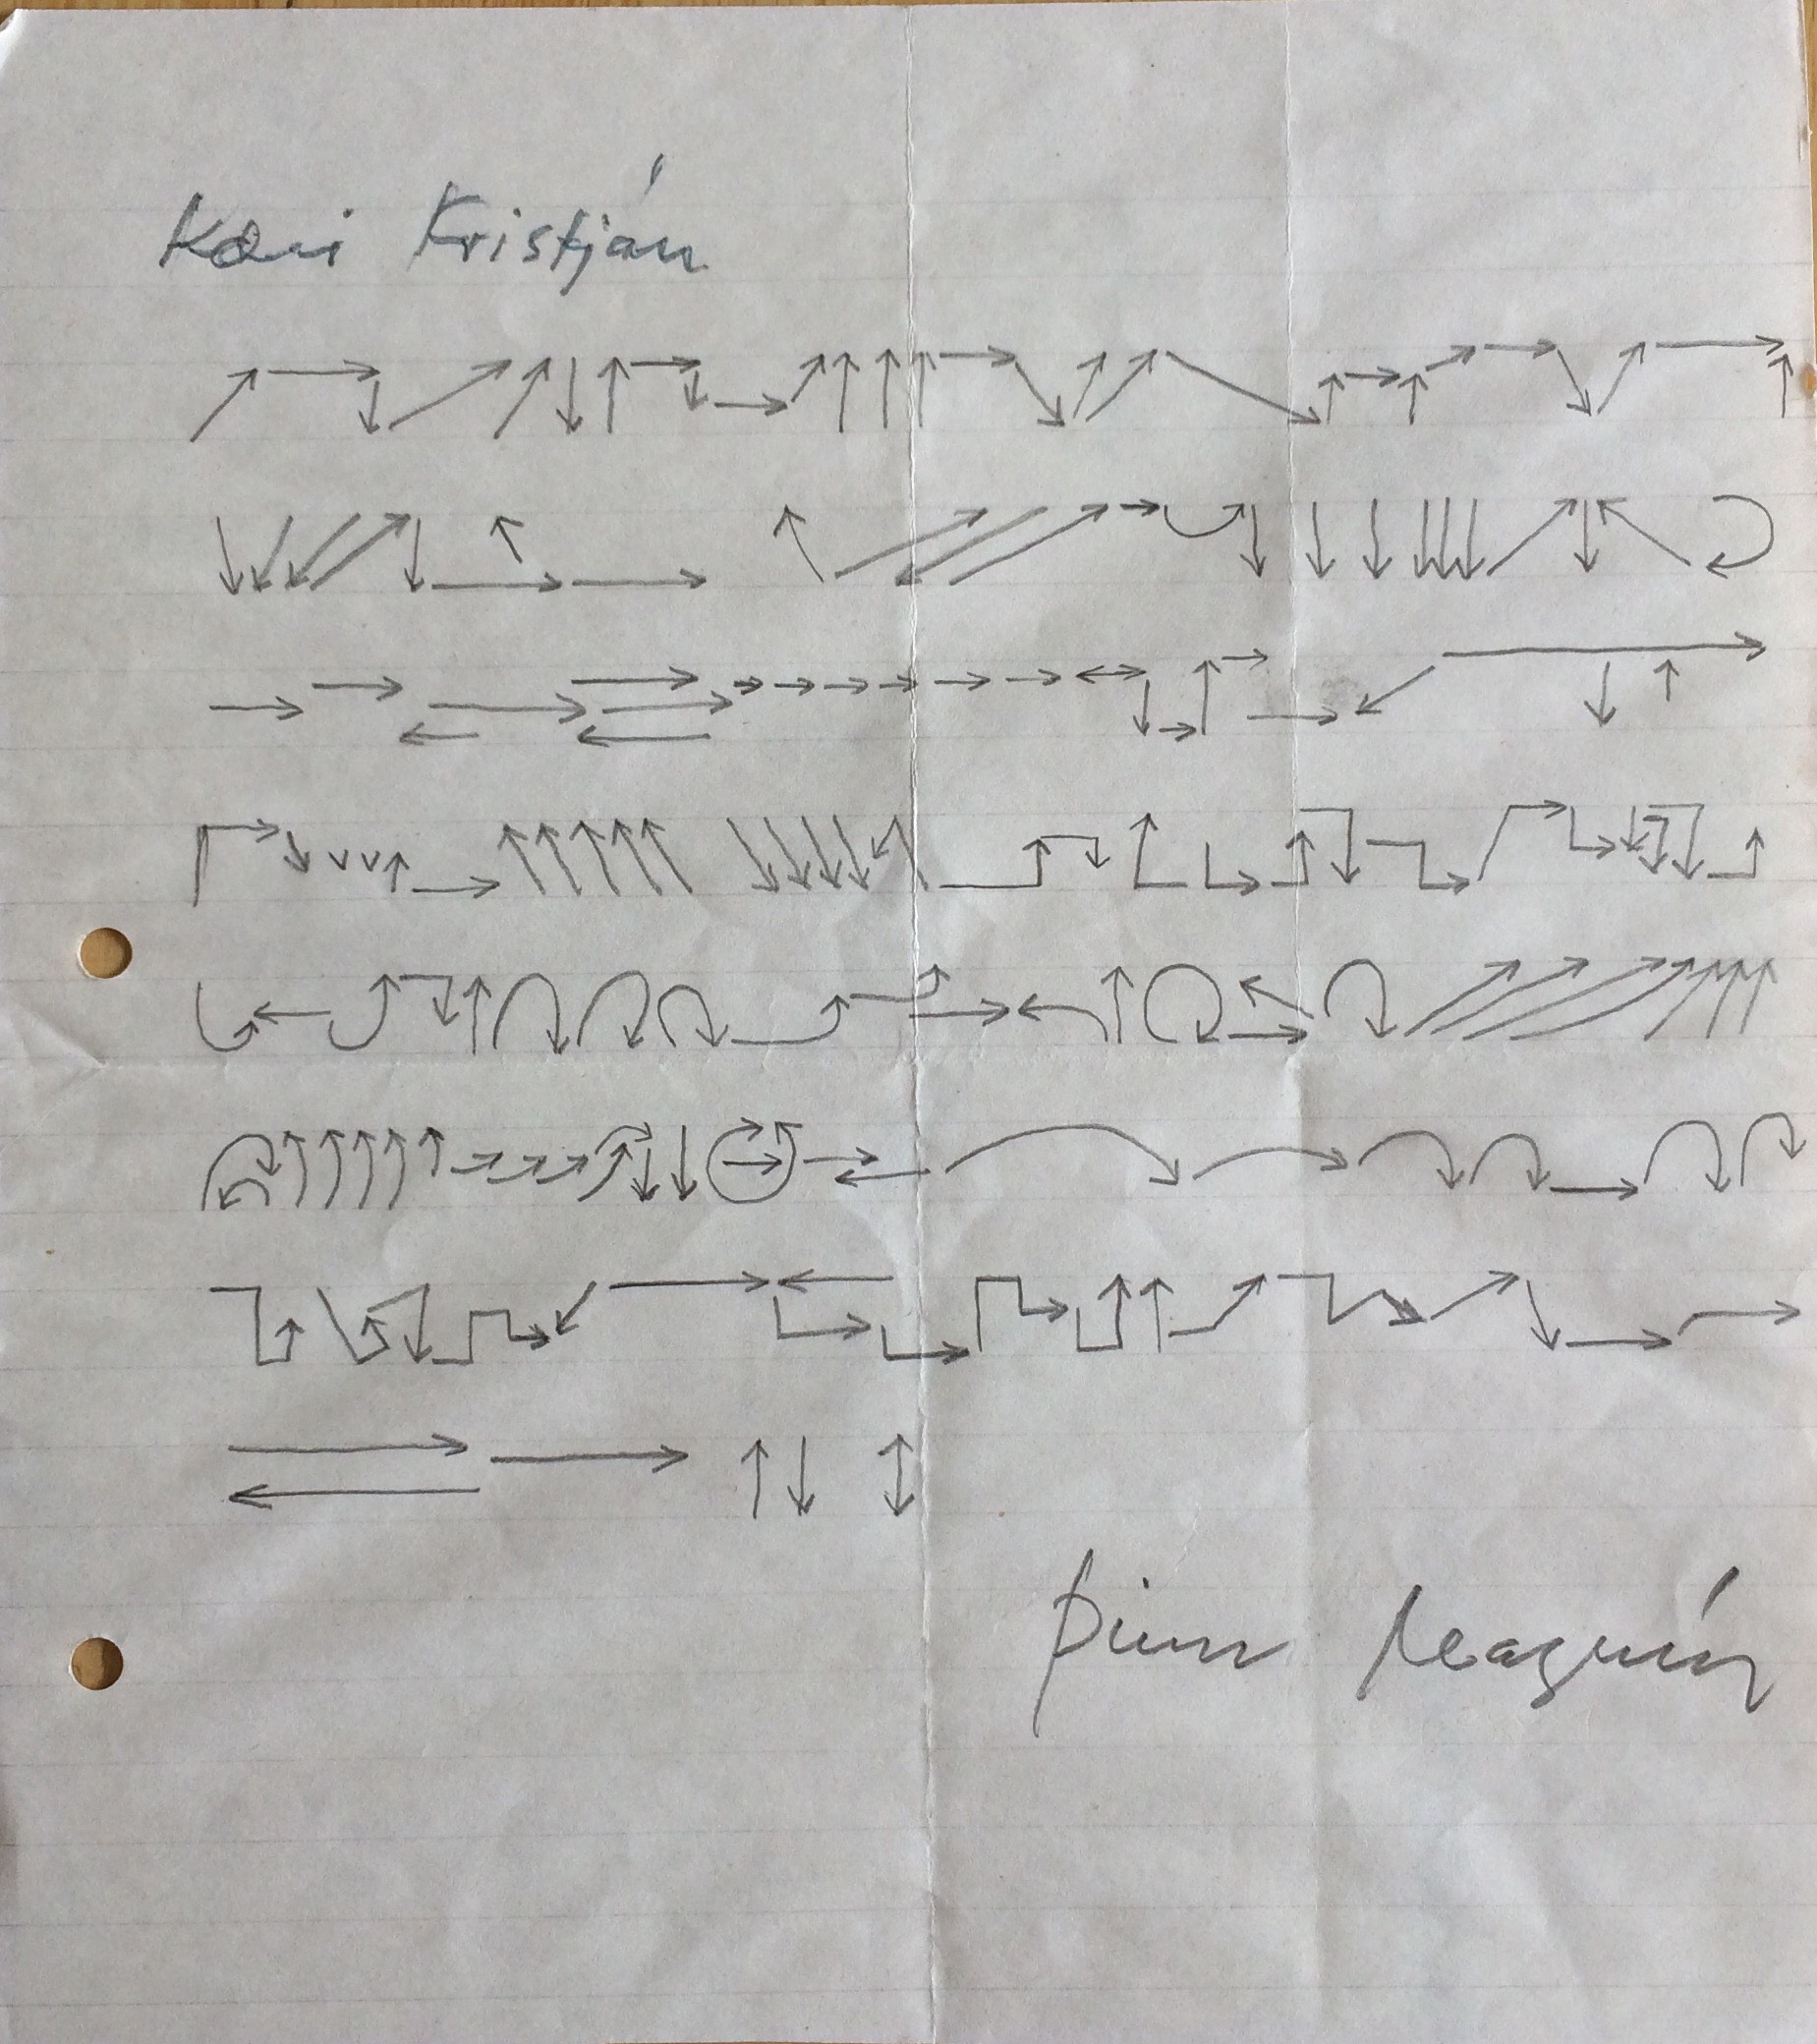 Kæri Kristján
Þinn Magnús